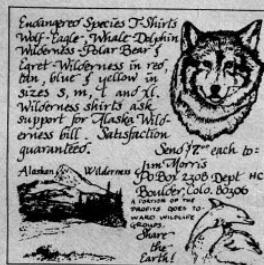 Endangered Species T-Shirts
Wolf-Eagle-Whale-Dolphin
Wilderness-Polar Bear &
Egret-Wilderness in red,
tan, blue & yellow in
sizes s, m, l and xl.
Wilderness shirts ask
support for Alaska Wild-
erness bill. Satisfaction
guaranteed.
Send $7.00 each to:
Jim Morris
PO Box 2308 Dept HC
Boulder, Colo. 80306
Alaskan Wilderness
A PORTION OF THE
PROFITS GOES TO-
WARD WILDLIFE
GROUPS.
Share
the
Earth!